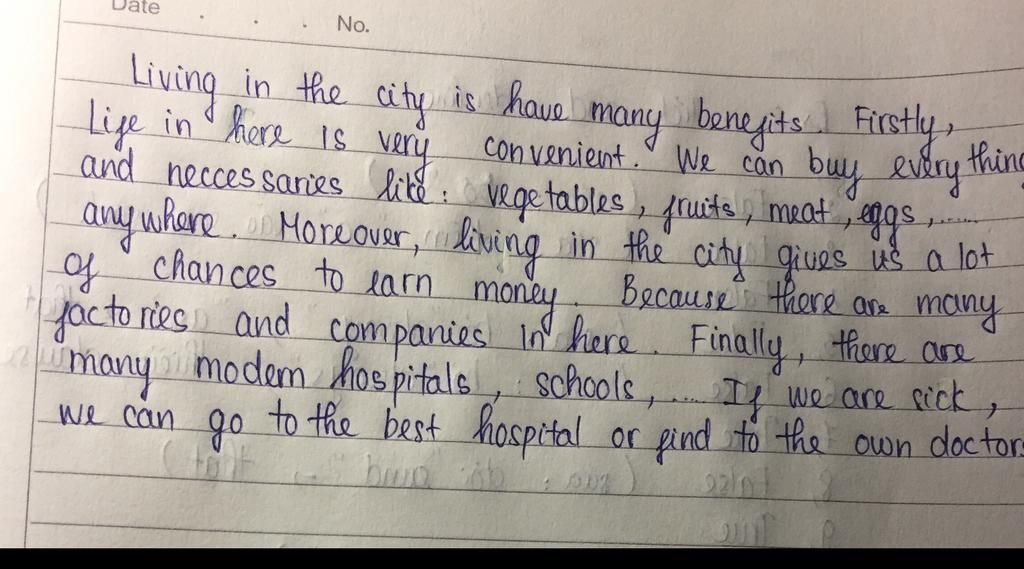 Date . . . No.
Living in the city is have many benefits. Firstly,
Life in here is very convenient. We can buy everything
and neccessaries like: vegetables, fruits, meat, eggs,......
anywhere. Moreover, living in the city gives us a lot
of chances to earn money. Because there are many
factories and companies in here. Finally, there are
many modern hospitals, schools,..... If we are sick,
we can go to the best hospital or find to the own doctors